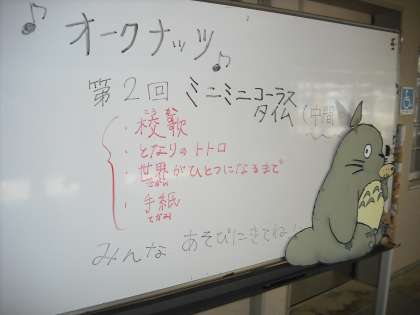 ♪ オークナッツ ♪
第2回 ミニミニコーラスタイム (中間
・校歌
・となりのトトロ
・世界がひとつになるまで
せかい
・手紙
てがみ
みんな あそびにきてね!